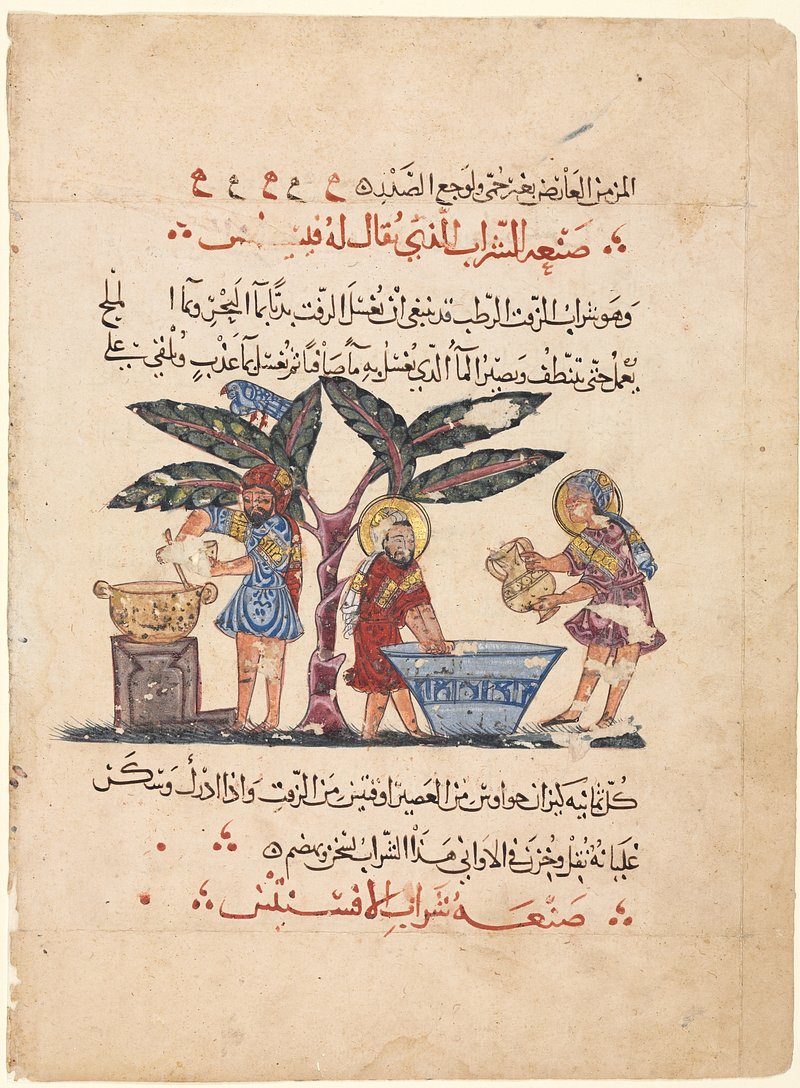 المزمن العارض بغير حمى ولوجع الصدر ه ه ه ه ه ه
صنعه الشراب الذي يقال له
وهو شراب الزفت الرطب قد ينبغي أن يغسل الزفت بديا بما البحر وبما الملح
يعمل حتى يتنظف ويصير الما الذي يغسل به ما صافيا ثم يغسل بما عذب ويلقي على
كل ثمانيه كيزان من العصير اوقيتين من الزفت واذا ادرك وسكن
غليانه نقل وخزن في الاواني هذا الشراب يسخن ويهضم ه
صنعه شراب الافسنتين